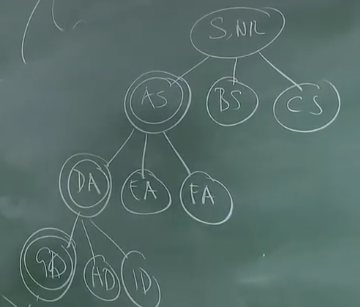 S, NIL
AS BS CS
DA EA FA
GD HD ID